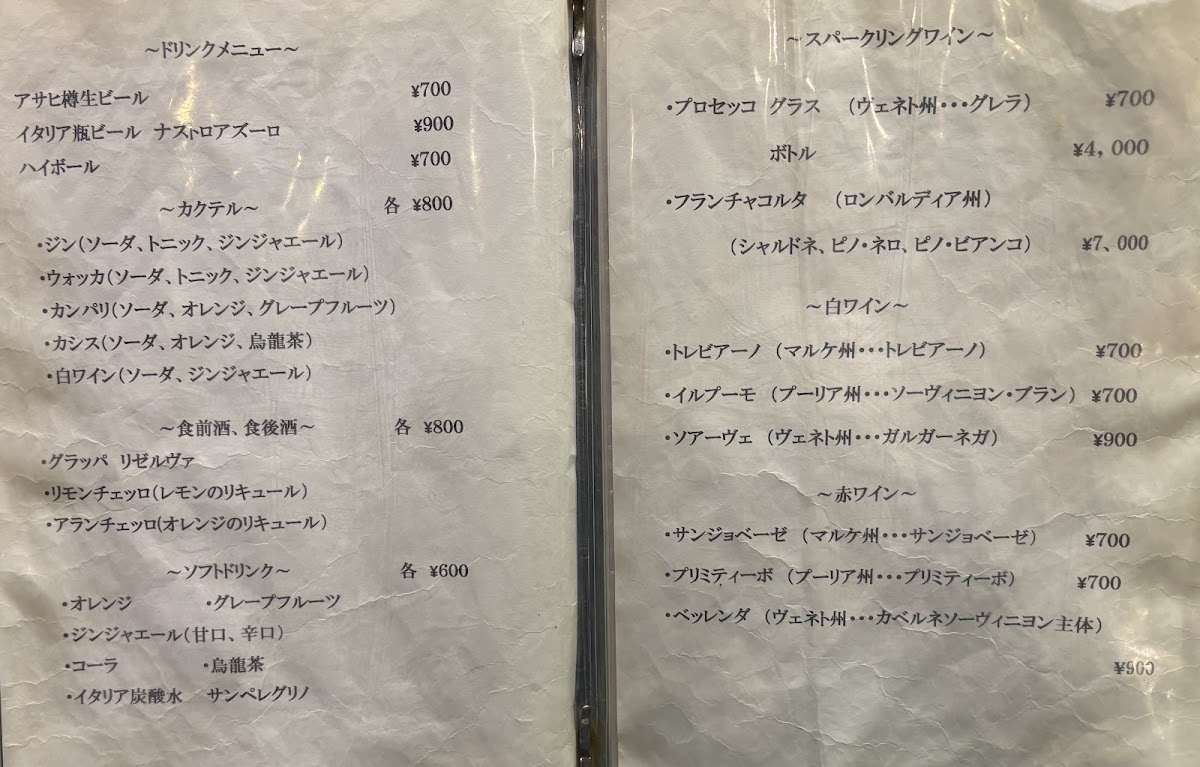 ～ドリンクメニュー～
アサヒ樽生ビール ¥700
イタリア瓶ビール ナストロアズーロ ¥900
ハイボール ¥700
～カクテル～ 各 ¥800
・ジン(ソーダ、トニック、ジンジャエール)
・ウォッカ(ソーダ、トニック、ジンジャエール)
・カンパリ(ソーダ、オレンジ、グレープフルーツ)
・カシス(ソーダ、オレンジ、烏龍茶)
・白ワイン(ソーダ、ジンジャエール)
～食前酒、食後酒～ 各 ¥800
・グラッパ リゼルヴァ
・リモンチェッロ(レモンのリキュール)
・アランチェッロ(オレンジのリキュール)
～ソフトドリンク～ 各 ¥600
・オレンジ ・グレープフルーツ
・ジンジャエール(甘口、辛口)
・コーラ ・烏龍茶
・イタリア炭酸水 サンペレグリノ
～スパークリングワイン～
・プロセッコ グラス （ヴェネト州・・・グレラ） ¥700
ボトル ¥4，000
・フランチャコルタ （ロンバルディア州）
（シャルドネ、ピノ・ネロ、ピノ・ビアンコ） ¥7、000
～白ワイン～
・トレビアーノ （マルケ州・・・トレビアーノ） ¥700
・イルプーモ （プーリア州・・・ソーヴィニヨン・ブラン） ¥700
・ソアーヴェ （ヴェネト州・・・ガルガーネガ） ¥900
～赤ワイン～
・サンジョベーゼ （マルケ州・・・サンジョベーゼ） ¥700
・プリミティーボ （プーリア州・・・プリミティーボ） ¥700
・ベッレンダ （ヴェネト州・・・カベルネソーヴィニヨン主体）
¥900